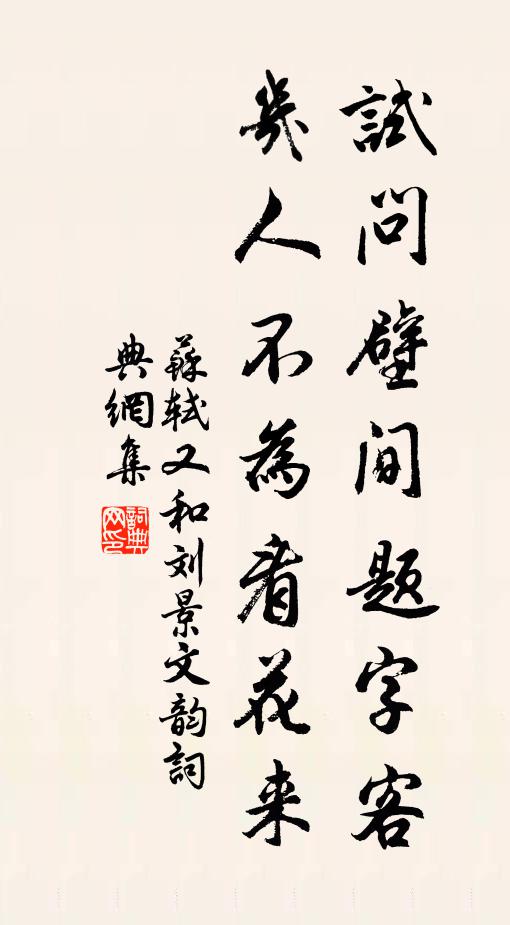 試問壁间题字客
幾人不為看花来
蘇軾又和刘景文韵詞
典網集
詞典网印